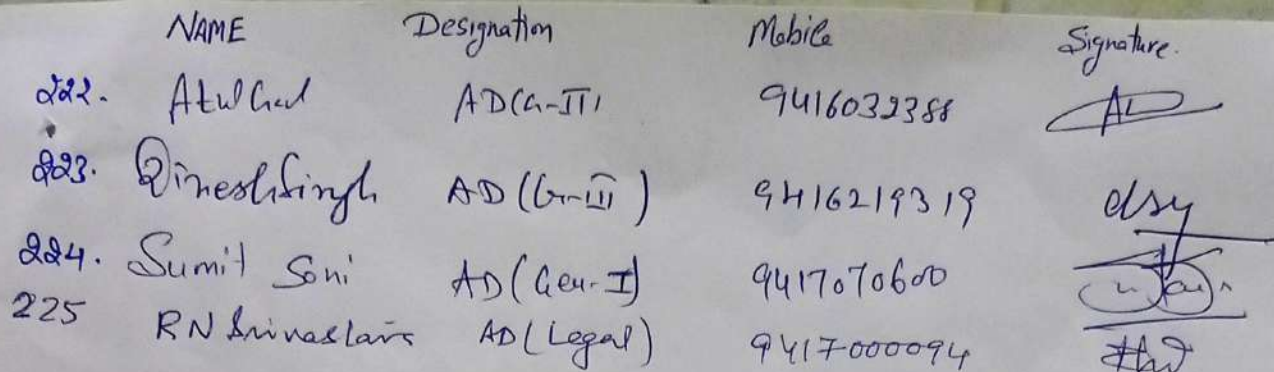 NAME Designation Mobile Signature.
222. Atul AD(G-III) 9416032388 AD
223. Dinesh Singh AD (G-III) 9416219319 dsy
224. Sumit Soni AD (Gen-I) 9417070600
225 RN Srivastava AD (Legal) 9417000094